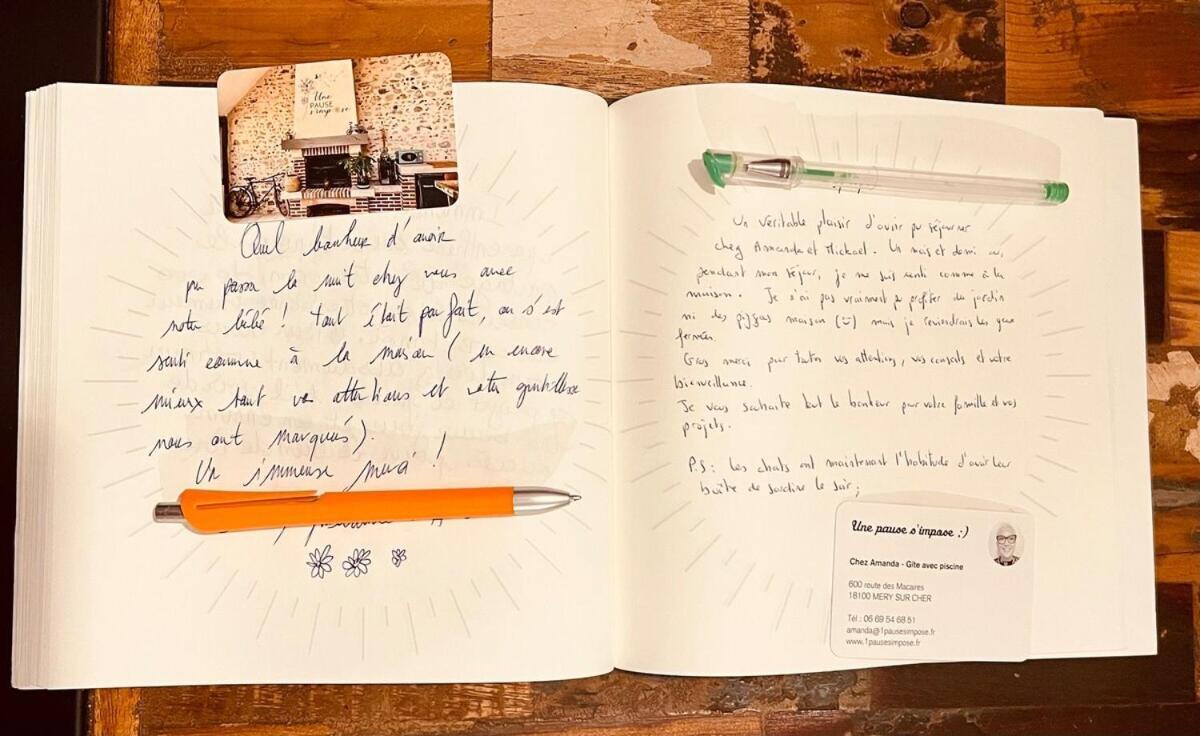 Une
PAUSE
s'impose
Quel bonheur d'avoir
pu passer la nuit chez vous avec
notre bébé ! Tout était parfait, on s'est
senti comme à la maison (ou encore
mieux tant vos attentions et votre gentillesse
nous ont marqués).
Un immense merci !
Un véritable plaisir d'avoir pu séjourner
chez Amanda et Mickael. Un mois et demi où,
pendant mon séjour, je me suis senti comme à la
maison. Je n'ai pas vraiment pu profiter du jardin
ni des pizzas maison (:) mais je reviendrais les yeux
fermés.
Gros merci pour toutes vos attentions, vos conseils et votre
bienveillance.
Je vous souhaite tout le bonheur pour votre famille et vos
projets.
P.S : Les chats ont maintenant l'habitude d'avoir leur
boîte de sardine le soir ;
Une pause s'impose ;)
Chez Amanda - Gîte avec piscine
600 route des Macaires
18100 MERY SUR CHER
Tél : 06 69 54 68 51
amanda@1pausesimpose.fr
www.1pausesimpose.fr